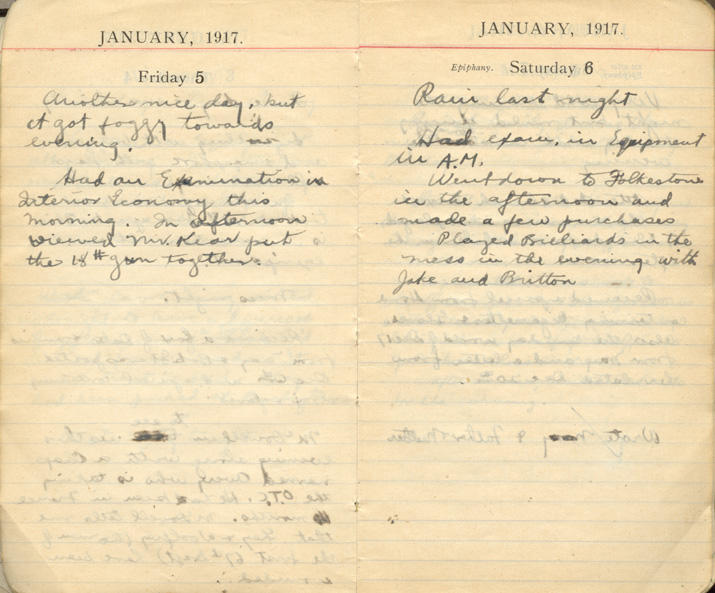 JANUARY, 1917.
Friday 5
Another nice day, but
it got foggy towards
evening.
Had an Examination in
Interior Economy this
morning. In afternoon
viewed Mr. Kear put
the 18th gun together.
JANUARY, 1917.
Epiphany. Saturday 6
Rain last night
Had exam, in Equipment
in A.M.
Went down to Folkestone
in the afternoon and
made a few purchases
Played Billiards in the
mess in the evening with
Jake and Britton